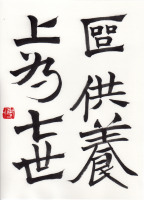 區供養
上為七世